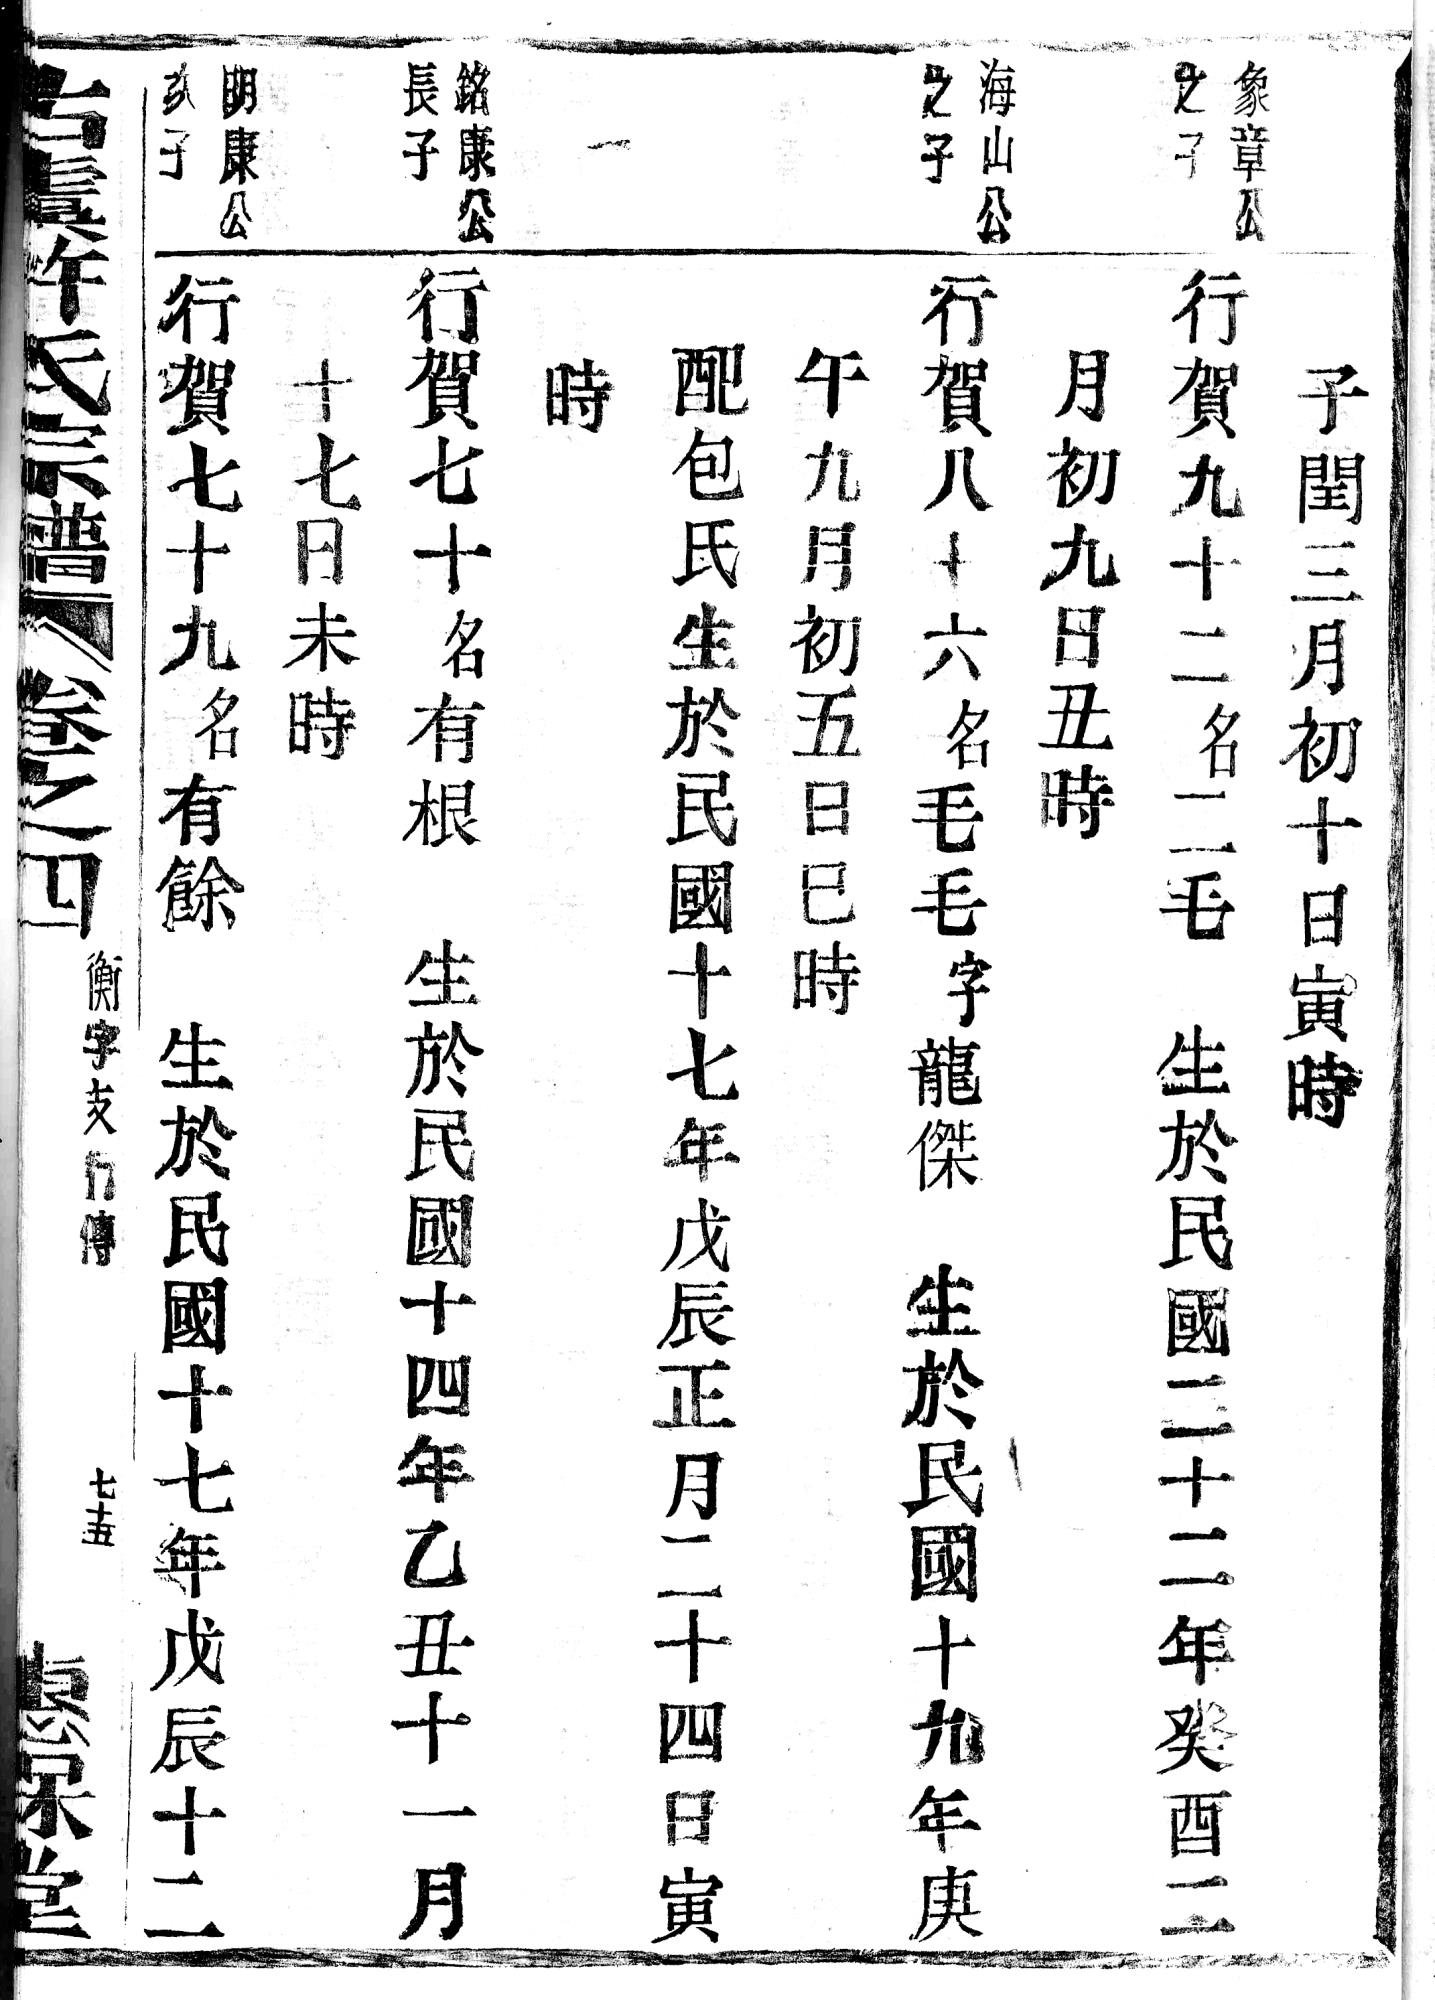 子閏三月初十日寅時
象章公
之子
行賀九十二名二毛　生於民國二十二年癸酉二
月初九日丑時
海山公
之子
行賀八十六名毛毛字龍傑　生於民國十九年庚
午九月初五日巳時
配包氏生於民國十七年戊辰正月二十四日寅
時
一
銘康公
長子
行賀七十名有根　生於民國十四年乙丑十一月
十七日未時
明康公
次子
行賀七十九名有餘　生於民國十七年戊辰十二
古虞許氏宗譜　卷之四　衡字支行傳　七十五　堂